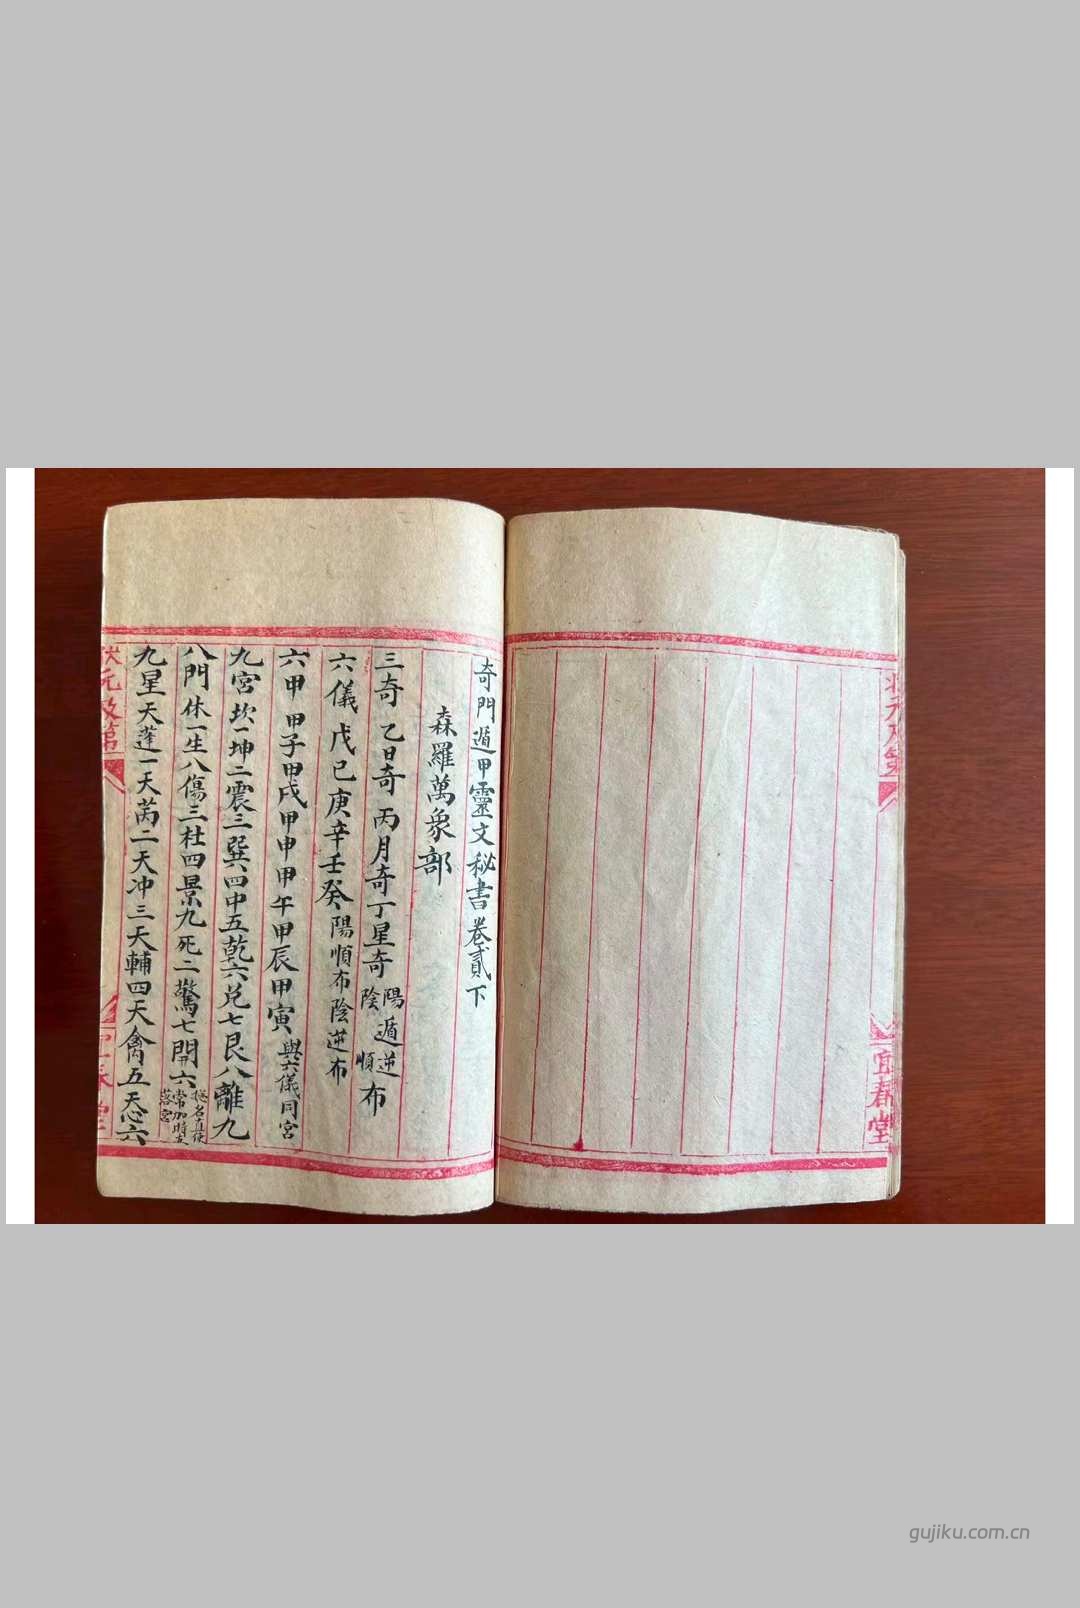 宜春堂
奇門遁甲靈文秘書卷貳下
森羅萬象部
三奇 乙日奇 丙月奇 丁星奇 陽遁逆陰順布
六儀 戊己庚辛壬癸 陽順布 陰逆布
六甲 甲子甲戌甲申甲午甲辰甲寅 與六儀同宮
九宮 坎一坤二震三巽四中五乾六兌七艮八離九
八門 休一生八傷三杜四景九死二驚七開六 常加時支落宮
九星 天蓬一天芮二天冲三天輔四天禽五天心六
元及第
gujiku.com.cn